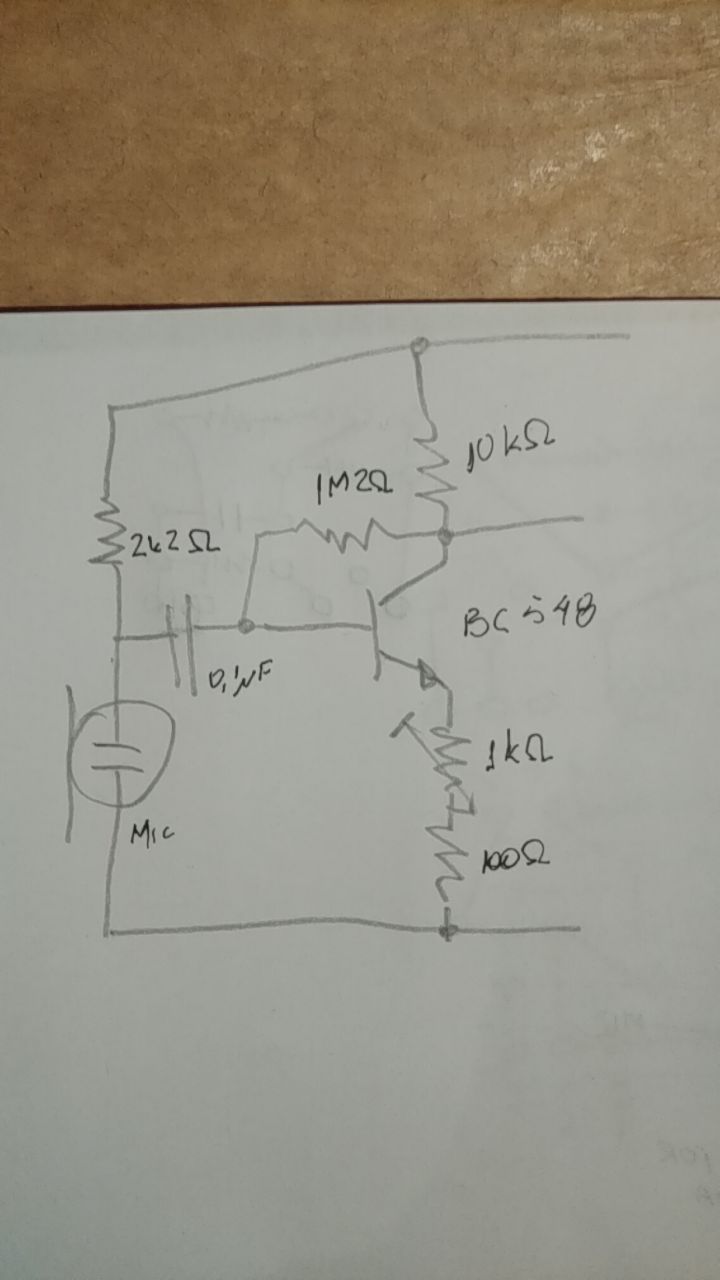 10kΩ
1M2Ω
2k2Ω
BC548
0,1µF
1kΩ
Mic
100Ω